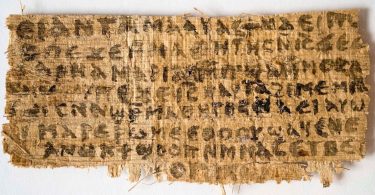 ⲉⲓ ⲁⲛ ⲧⲁⲙⲁⲁⲩ ⲁⲥϯ ⲛⲁⲉⲓ ⲡⲱ
ⲡⲉϫⲉ ⲙⲙⲁⲑⲏⲧⲏⲥ ⲛⲓⲥ ϫⲉ ⲥ
ⲁⲣⲛⲁ ⲙⲁⲣⲓⲁⲙ ⲙⲡϣⲁ ⲙⲙⲟⲥ ⲁⲛ
ⲡⲉϫⲉ ⲓⲥ ⲛⲁⲩ ⲧⲁϩⲓⲙⲉ ⲙⲛ
ⲥⲛⲁϣⲣⲙⲁⲑⲏⲧⲏⲥ ⲛⲁⲉⲓ ⲁⲩⲱ
ⲓ ⲙⲁⲣⲉⲣⲱⲙⲉ ⲉⲑⲟⲟⲩ ϣⲁϥⲉⲛⲉ
ⲁⲛⲟⲕ ϯϣⲟⲟⲡ ⲛⲙⲙⲁⲥ ⲉⲧⲃⲉ